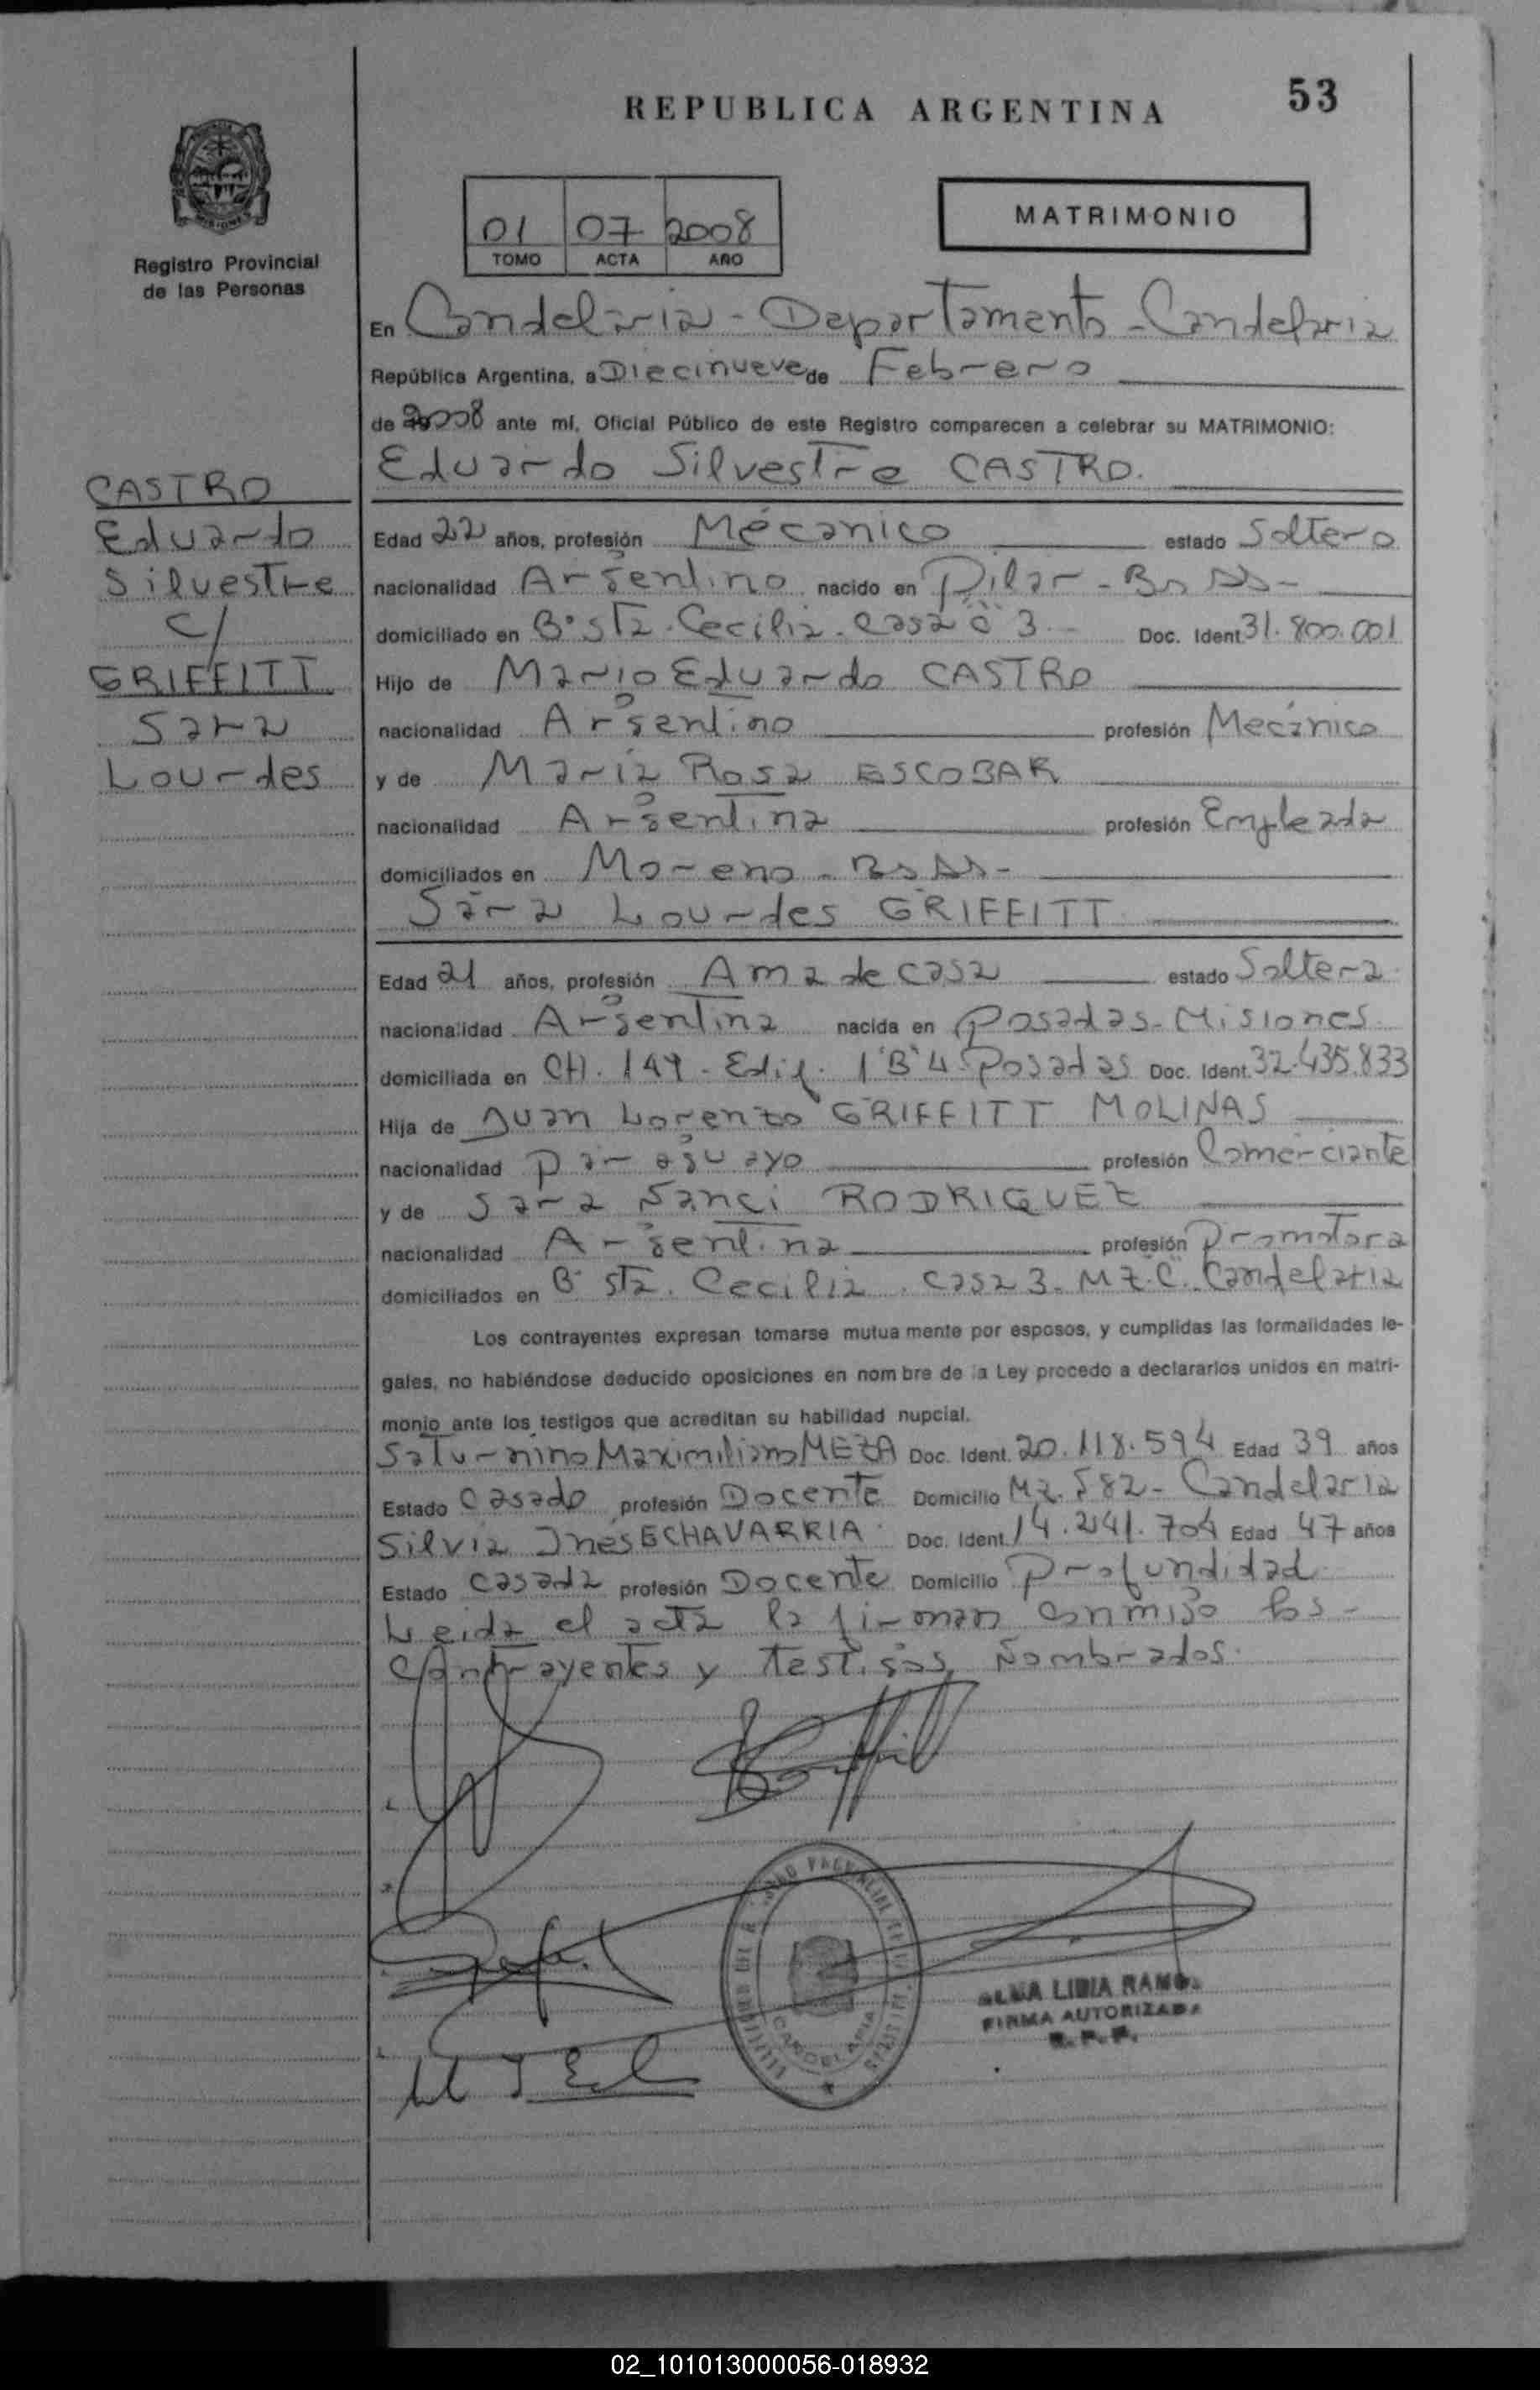 53
REPUBLICA ARGENTINA
MATRIMONIO
01 07 2008
TOMO ACTA AÑO
MISIONES
Registro Provincial
de las Personas
En Candelaria - Departamento - Candelaria
República Argentina, a Diecinueve de Febrero
de 2008 ante mí, Oficial Público de este Registro comparecen a celebrar su MATRIMONIO:
Eduardo Silvestre CASTRO.
CASTRO
Eduardo
Silvestre
c/
GRIFFITT
Sara
Lourdes
Edad 22 años, profesión Mecánico estado Soltero
nacionalidad Argentino nacido en Pilar - Bs As -
domiciliado en B° Sta. Cecilia - Casa "C" 3 - Doc. Ident. 31.800.001
Hijo de Mario Eduardo CASTRO
nacionalidad Argentino profesión Mecánico
y de María Rosa ESCOBAR
nacionalidad Argentina profesión Empleada
domiciliados en Moreno - Bs As -
Sara Lourdes GRIFFITT
Edad 21 años, profesión Ama de casa estado Soltera
nacionalidad Argentina nacida en Posadas - Misiones.
domiciliada en CH. 149 - Edif. 1 "B" 4 - Posadas Doc. Ident. 32.435.833
Hija de Juan Lorenzo GRIFFITT MOLINAS
nacionalidad paraguayo profesión Comerciante
y de Sara Nanci RODRIGUEZ
nacionalidad Argentina profesión Promotora
domiciliados en B° Sta. Cecilia. Casa 3 - MZ. C. Candelaria
Los contrayentes expresan tomarse mutua mente por esposos, y cumplidas las formalidades le-
gales, no habiéndose deducido oposiciones en nom bre de la Ley procedo a declararlos unidos en matri-
monio ante los testigos que acreditan su habilidad nupcial.
Saturnino Maximiliano MEZA Doc. Ident. 20.118.594 Edad 39 años
Estado Casado profesión Docente Domicilio Mz. 582 - Candelaria
Silvia Ines ECHAVARRIA Doc. Ident. 14.241.704 Edad 47 años
Estado Casada profesión Docente Domicilio Profundidad
Leida el acta la firman conmigo los -
contrayentes y testigos Nombrados.
CANDELARIA
LIDIA RAMOS
FIRMA AUTORIZADA
R. P. P.
02_101013000056-018932